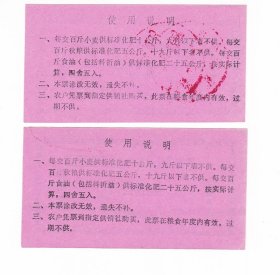 使用说明
一、每交百斤小麦供标准化肥十公斤，九斤以下者不供。每交
百斤秋粮供标准化肥五公斤，十九斤以下者不供。每交
百斤食油（包括料折油）供标准化肥二十五公斤，按实际
计算，四舍五入。
二、本票涂改无效，遗失不补。
三、农户凭票到指定供销社购买，此票在粮食年度内有效，过
期不供。
使用说明
一、每交百斤小麦供标准化肥十公斤，九斤以下者不供。每交
百斤秋粮供标准化肥五公斤，十九斤以下者不供。每交
百斤食油（包括料折油）供标准化肥二十五公斤，按实际
计算，四舍五入。
二、本票涂改无效，遗失不补。
三、农户凭票到指定供销社购买，此票在粮食年度内有效，过
期不供。